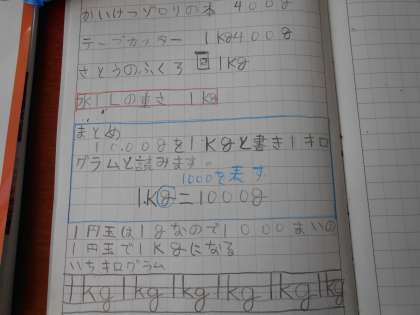 かいけつゾロリの本 400g
テープカッター 1kg400g
さとうのふくろ 1kg
水1Lの重さ 1kg
まとめ
1000gを1Kgと書き1キロ
グラムと読みます。
1000を表す
1Kg=1000g
1円玉は1gなので1000まいの
1円玉で1Kgになる
いちキログラム
1kg 1kg 1kg 1kg 1kg 1kg